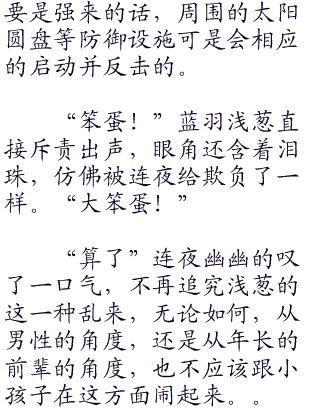 要是强来的话，周围的太阳
圆盘等防御设施可是会相应
的启动并反击的。
“笨蛋！”蓝羽浅葱直
接斥责出声，眼角还含着泪
珠，仿佛被连夜给欺负了一
样。“大笨蛋！”
“算了”连夜幽幽的叹
了一口气，不再追究浅葱的
这一种乱来，无论如何，从
男性的角度，还是从年长的
前辈的角度，也不应该跟小
孩子在这方面闹起来。。